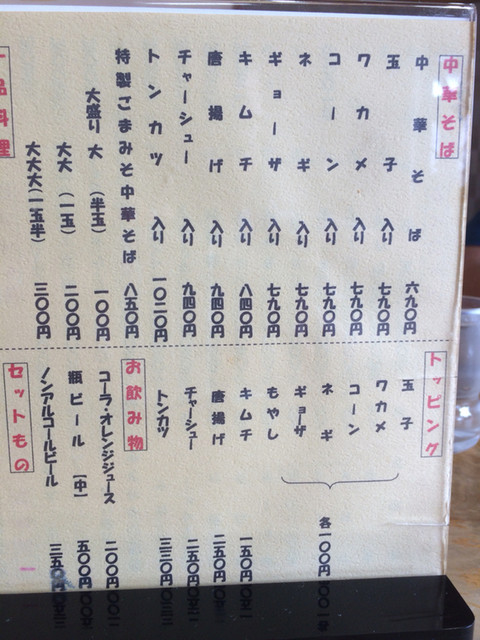 中華そば
中華そば 六九〇円
玉子入り 七九〇円
ワカメ入り 七九〇円
コーン入り 七九〇円
ネギ入り 七九〇円
ギョーザ入り 七九〇円
キムチ入り 八四〇円
唐揚げ入り 九四〇円
チャーシュー入り 九四〇円
トンカツ入り 一〇二〇円
特製ごまみそ中華そば 八五〇円
大盛り 大 (半玉) 一〇〇円
大大 (一玉) 二〇〇円
大大大(一玉半) 三〇〇円
一品料理
トッピング
玉子
ワカメ
コーン
ネギ
ギョーザ
もやし
各一〇〇円
キムチ 一五〇円
唐揚げ 二五〇円
チャーシュー 二五〇円
トンカツ 三三〇円
お飲み物
コーラ・オレンジジュース 二〇〇円
瓶ビール [中] 五〇〇円
ノンアルコールビール 三五〇円
セットもの